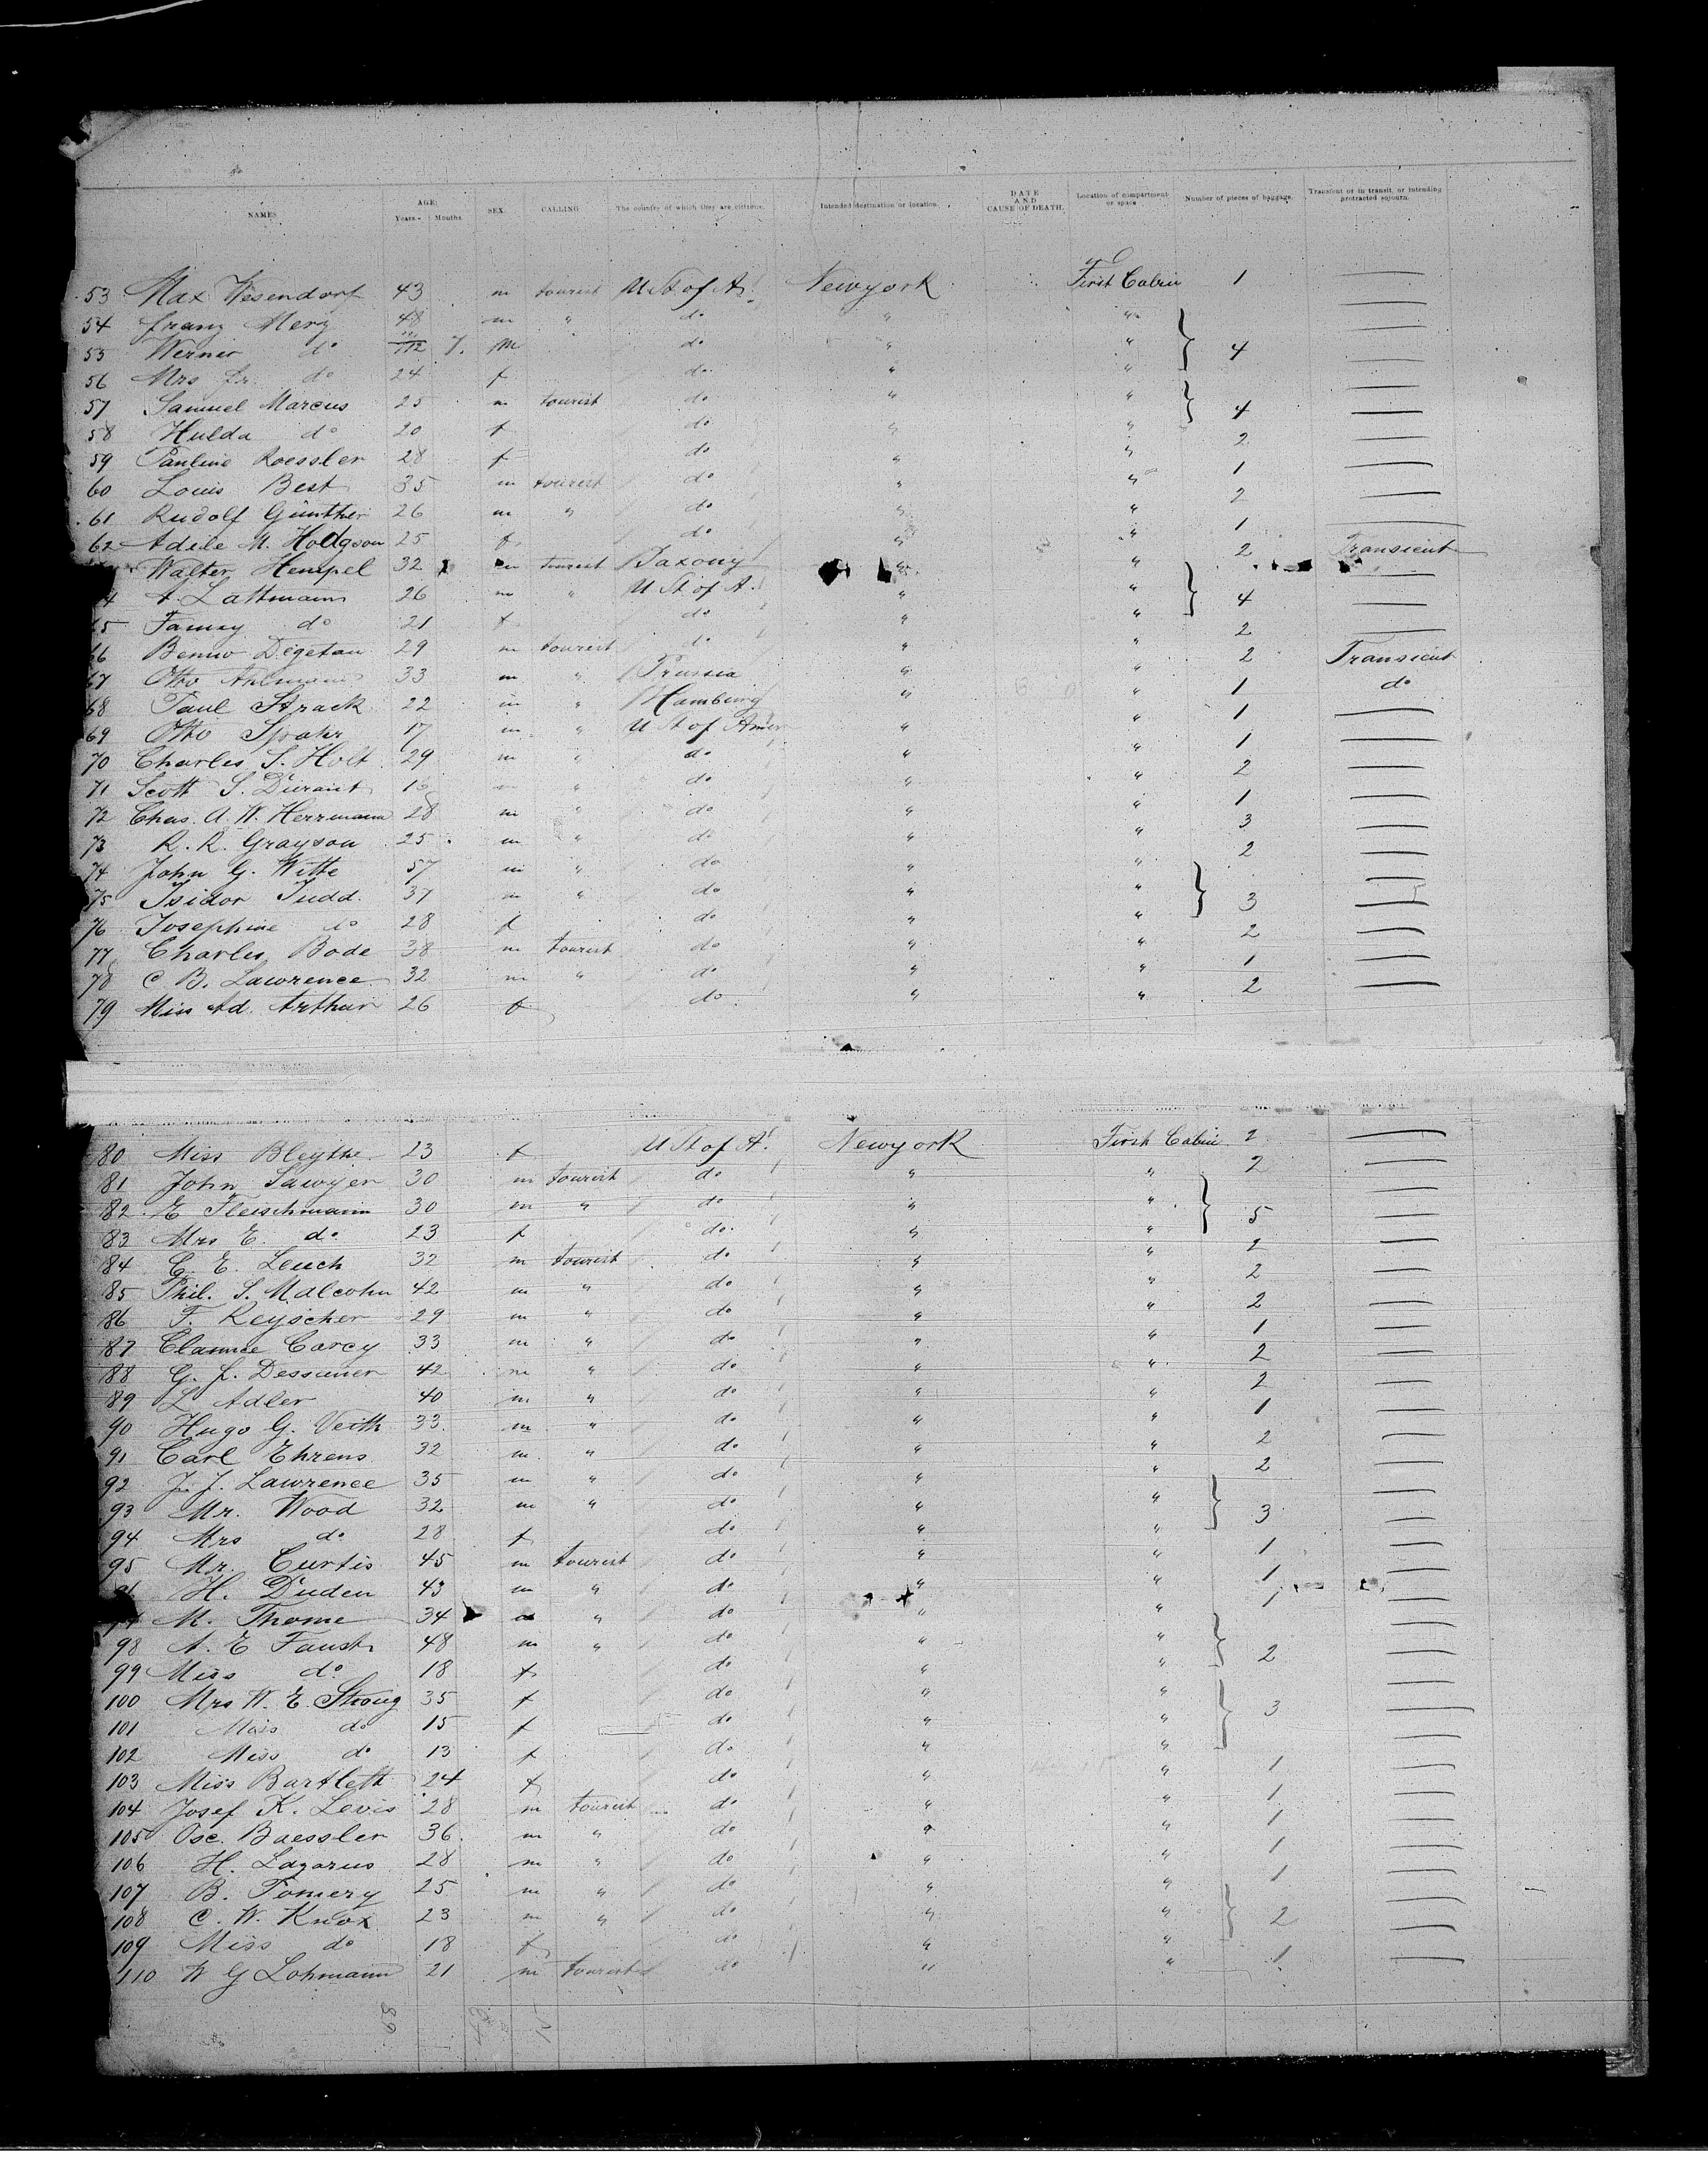 NAMES AGE: Years. Months SEX. CALLING The country of which they are citizens. Intended destination or location. DATE AND CAUSE OF DEATH. Location of compartment or space Number of pieces of baggage. Transient or in transit, or intending protracted sojourn.
53 Max Wesendorf 43 m tourist U St of A. Newyork First Cabin 1 —
54 Franz Merz 48 m " do " " —
55 Werner do 7. m do " " } 4 —
56 Mrs Fr. do 24 f do " " —
57 Samuel Marcus 25 m tourist do " " —
58 Hulda do 20 f do " " } 4 —
59 Pauline Roessler 28 f do " " 2 —
60 Louis Best 35 m tourist do " " 1 —
61 Rudolf Günther 26 m " do " " 2 —
62 Adele M. Hodgson 25 f do " " 1 —
Walter Hempel 32 m tourist Saxony " " 2 Transient
4 A. Lattmann 26 m " U St of A. " " —
65 Fanny do 21 f do " " } 4 —
66 Benno Degetau 29 m tourist do " " 2 —
67 Otto Ahlmann 33 m " Prussia " " 2 Transient
68 Paul Strack 22 m " Hamburg " " 1 do
69 Otto Spahr 17 m " U St of Amer " " 1 —
70 Charles S. Holt 29 m " do " " 1 —
71 Scott S. Durant 16 m " do " " 2 —
72 Chas. A. W. Herrmann 28 m " do " " 1 —
73 R. R. Grayson 25 m " do " " 3 —
74 John G. Witte 57 m " do " " 2 —
75 Isidor Judd. 37 m " do " " —
76 Josephine do 28 f do " " } 3 —
77 Charles Bode 38 m tourist do " " 2 —
78 C B. Lawrence 32 m " do " " 1 —
79 Miss Ad. Arthur 26 f do " " 2 —
80 Miss Bleythe 23 f U St of A. Newyork First Cabin 2 —
81 John Sawyer 30 m tourist do " " 2 —
82 E Fleischmann 30 m " do " " —
83 Mrs E. do 23 f do " " } 5 —
84 G. E. Leuch 32 m tourist do " " 2 —
85 Phil. S. Malcohn 42 m " do " " 2 —
86 F. Reyscher 29 m " do " " 2 —
87 Clarence Carey 33 m " do " " 1 —
88 G. L. Dessauer 42 m " do " " 2 —
89 L Adler 40 m " do " " 2 —
90 Hugo G. Veith 33 m " do " " 1 —
91 Carl Ehrens 32 m " do " " 2 —
92 J. J. Lawrence 35 m " do " " 2 —
93 Mr. Wood 32 m " do " " —
94 Mrs do 28 f do " " } 3 —
95 Mr. Curtis 45 m tourist do " " 1 —
H. Duden 43 m " do " " 1 —
M. Thome 34 m " do " " 1 —
98 A. E Faust 48 m " do " " —
99 Miss do 18 f do " " } 2 —
100 Mrs W. E. Strong 35 f do " " —
101 Miss do 15 f do " " } 3 —
102 Miss do 13 f do " " —
103 Miss Bartlett 24 f do " " 1 —
104 Josef K. Levis 28 m tourist do " " 1 —
105 Osc. Baessler 36 m " do " " 1 —
106 H. Lazarus 28 m " do " " 1 —
107 B. Tomery 25 m " do " " 1 —
108 C. W. Knox 23 m " do " " —
109 Miss do 18 f do " " } 2 —
110 W G Lohmann 21 m tourist do " " 1 —